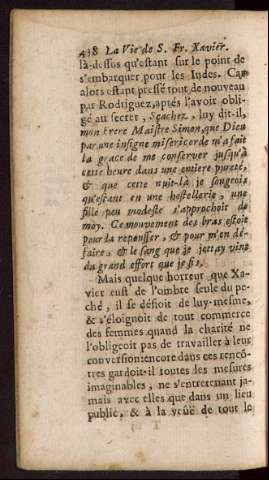 438 La Vie de S. Fr. Xavier.
là-dessus qu'estant sur le point de
s'embarquer pour les Indes. Car
alors estant pressé tout de nouveau
par Rodriguez, aprés l'avoir obli-
gé au secret, Sçachez, luy dit-il,
mon Frere Maistre Simon, que Dieu
par une insigne misericorde m'a fait
la grace de me conserver jusqu'à
cette heure dans une entiere pureté,
& que cette nuit-là je songeois
qu'estant en une hostellerie, une
fille peu modeste s'approchoit de
moy. Ce mouvement des bras estoit
pour la repousser, & pour m'en dé-
faire, & le sang que je jettay vint
du grand effort que je fis.
Mais quelque horreur que Xa-
vier eust de l'ombre seule du pe-
ché, il se défioit de luy-mesme,
& s'éloignoit de tout commerce
des femmes quand la charité ne
l'obligeoit pas de travailler à leur
conversion: encore dans ces rencon-
tres gardoit-il toutes les mesures
imaginables, ne s'entretenant ja-
mais avec elles que dans un lieu
public, & à la veûë de tout le